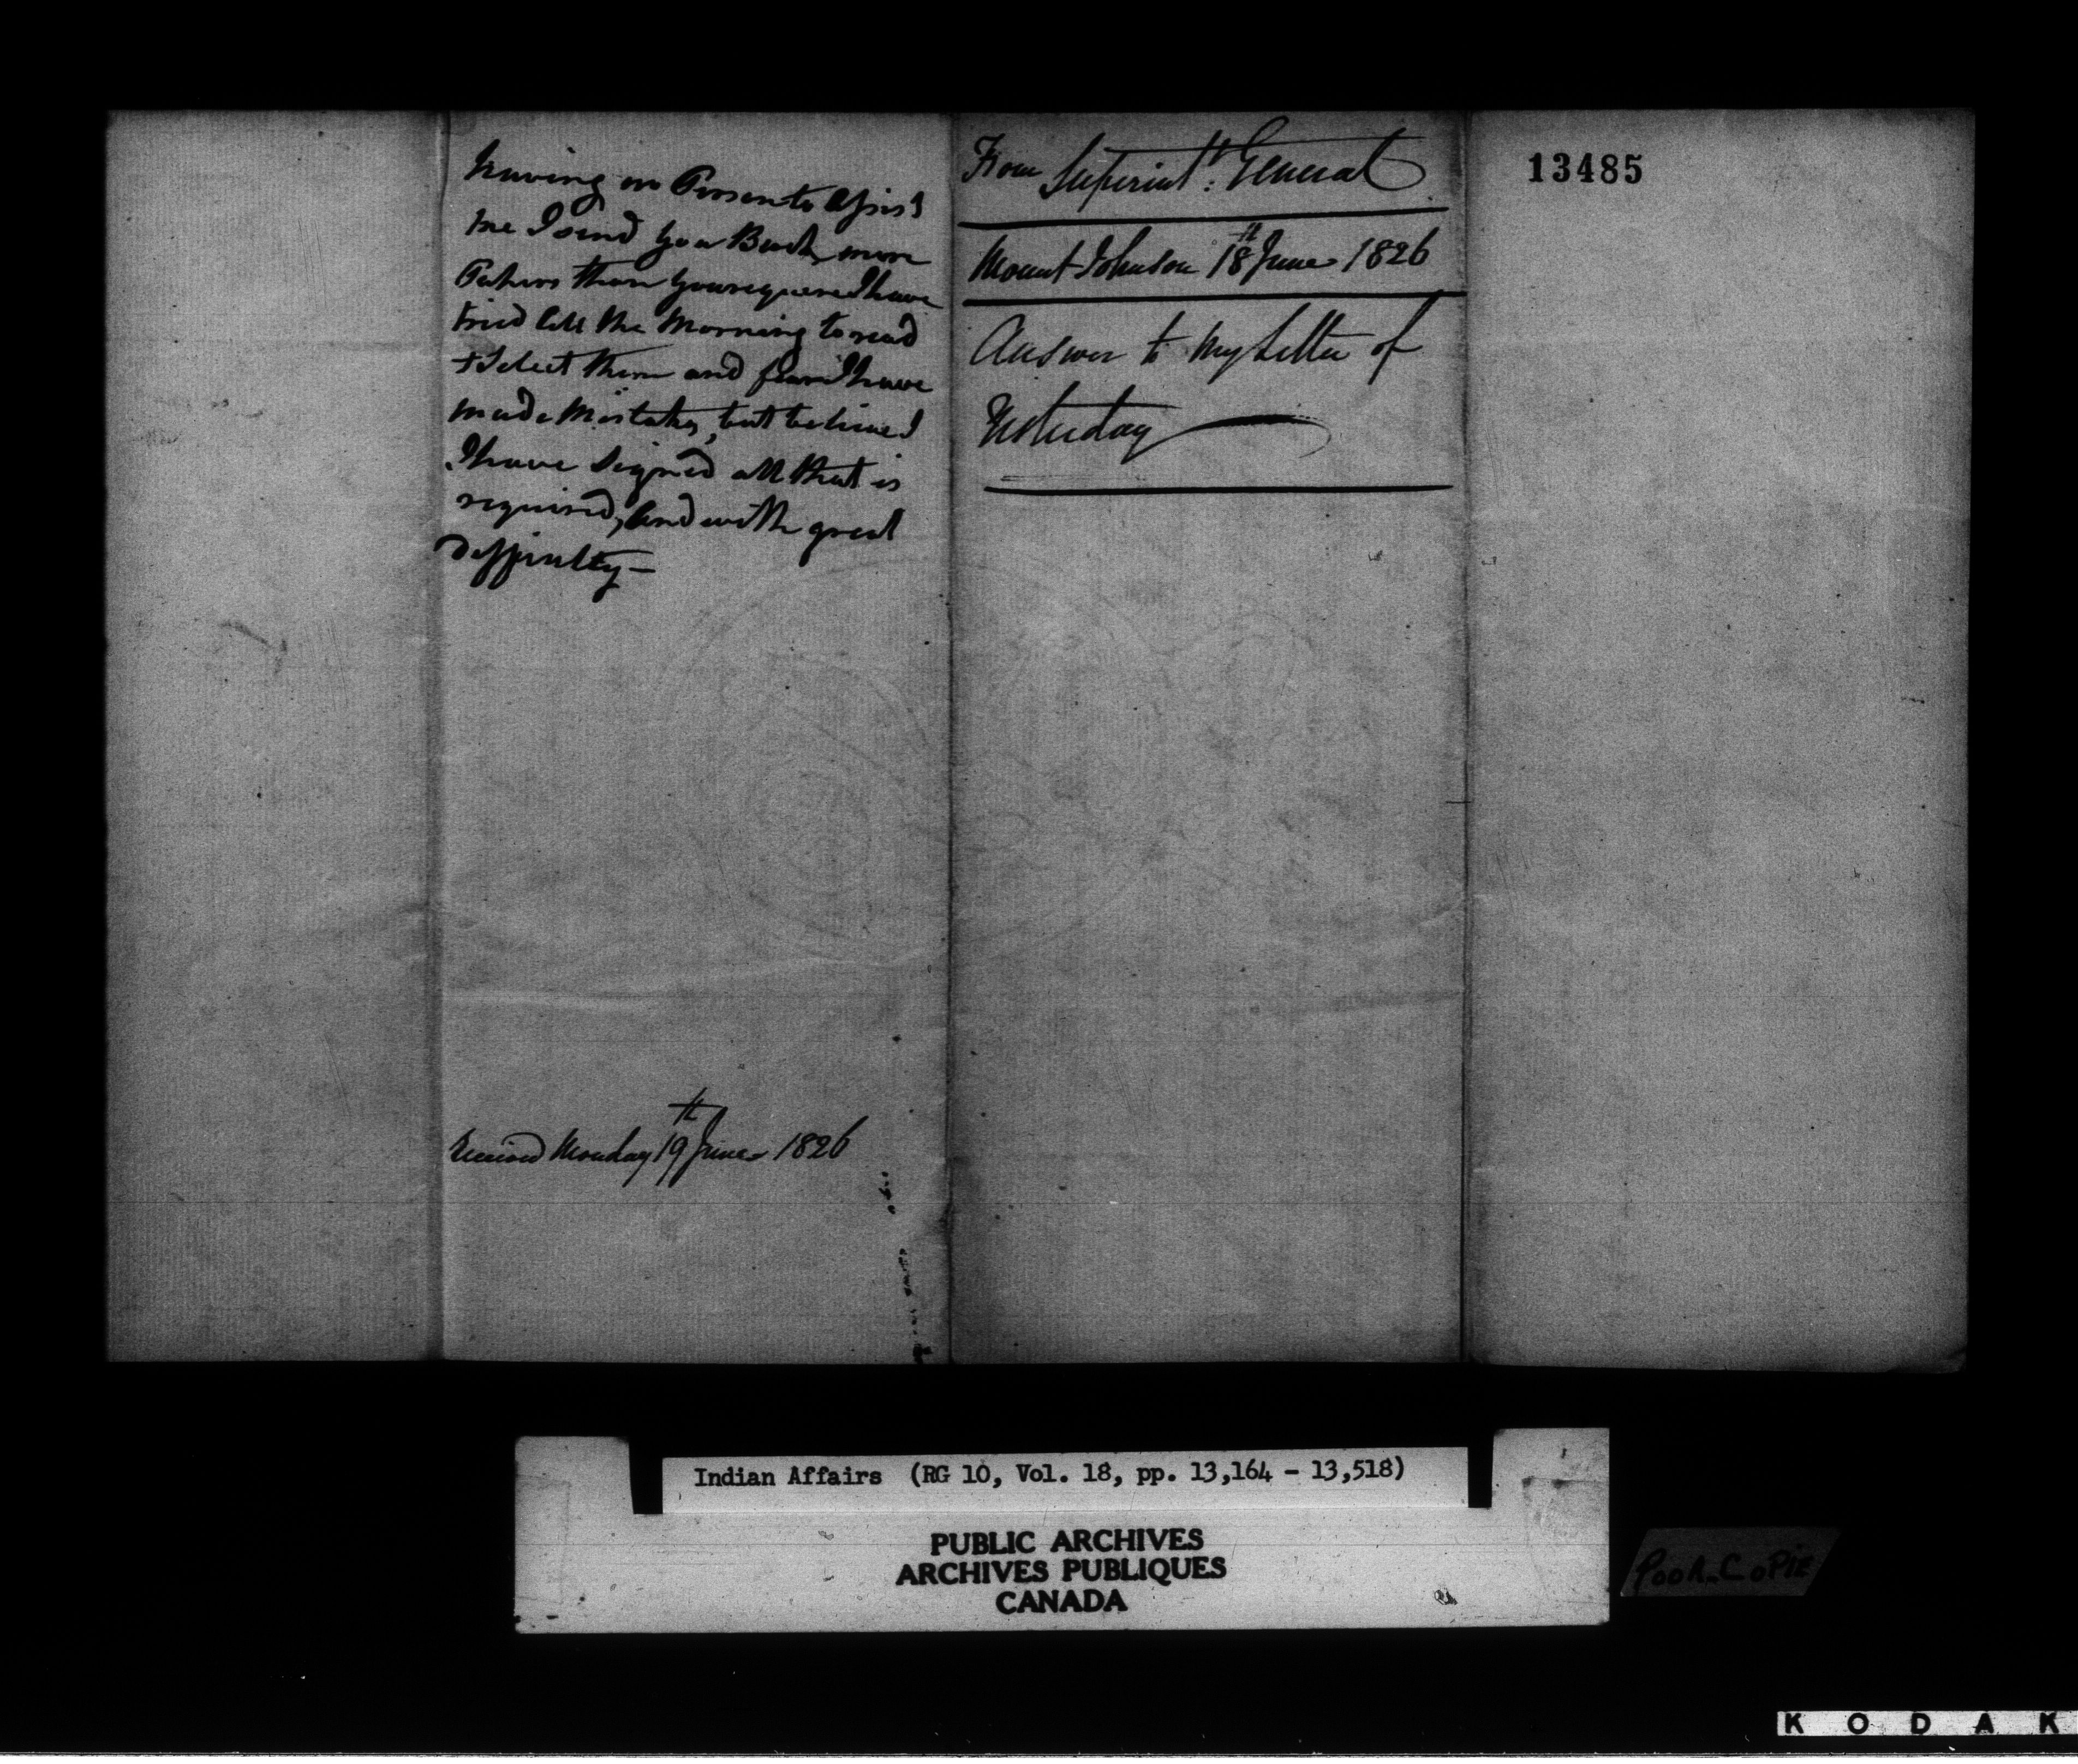 having no Person to Assist
me I send you Back more
Papers than you require I have
tried all the Morning to read
& Select them and fear I have
made Mistakes, but believe I
I have Signed all that is
required, and with great
difficulty —
Received Monday 19th June 1826
From Superint't: General
Mount Johnson 18th June 1826
Answer to my Letter of
Yesterday
13485
Indian Affairs (RG 10, Vol. 18, pp. 13,164 - 13,518)
PUBLIC ARCHIVES
ARCHIVES PUBLIQUES
CANADA
POOR COPIE
KODAK